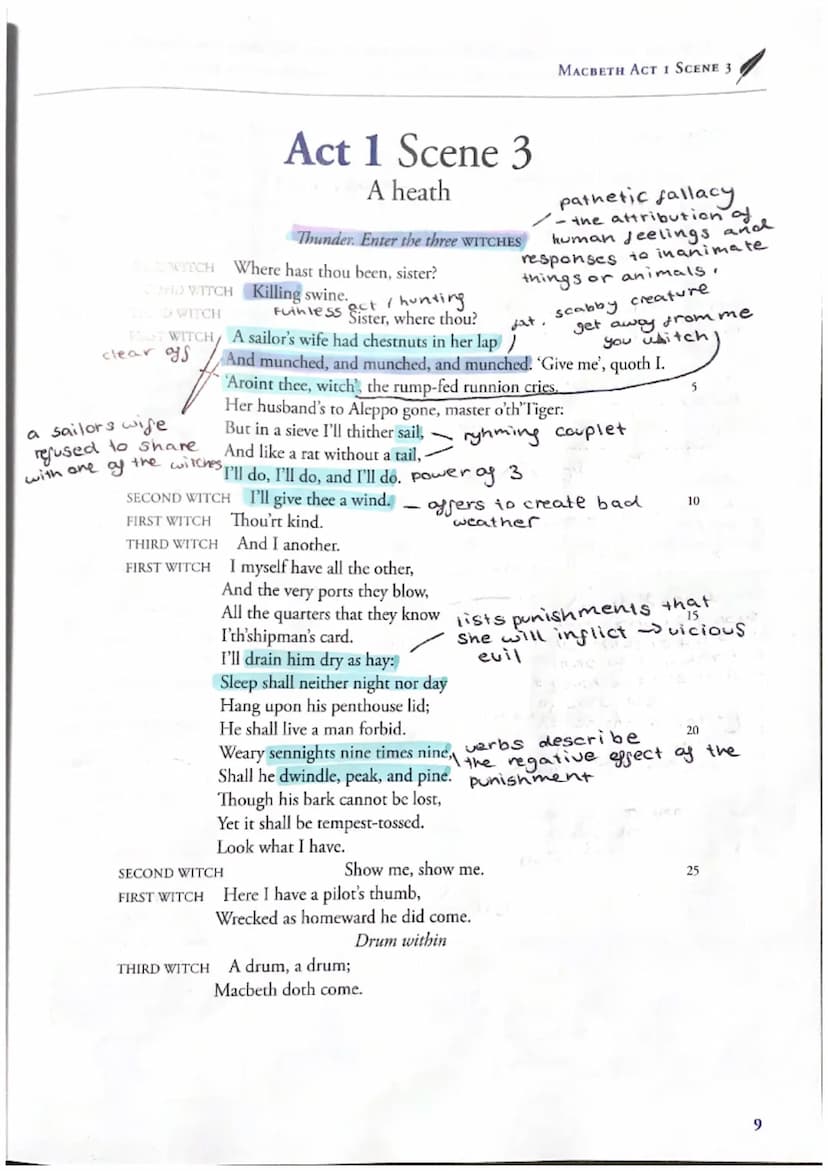 MACBETH ACT 1 SCENE 3
Act 1 Scene 3
A heath
pathetic fallacy
- the attribution of
human feelings and
responses to inanimate
things or animals.
Thunder. Enter the three WITCHES
WITCH Where hast thou been, sister?
WITCH Killing swine.
ruthless act / hunting
WITCH Sister, where thou?
fat, scabby creature
get away from me
you witch
WITCH A sailor's wife had chestnuts in her lap
clear off
And munched, and munched, and munched. 'Give me', quoth I.
'Aroint thee, witch', the rump-fed runnion cries. 5
Her husband's to Aleppo gone, master o'th'Tiger:
a sailors wife
refused to share
with one of the witches
But in a sieve I'll thither sail, ryhming couplet
And like a rat without a tail,
I'll do, I'll do, and I'll do. power of 3
SECOND WITCH I'll give thee a wind. 10
- offers to create bad
weather
FIRST WITCH Thou'rt kind.
THIRD WITCH And I another.
FIRST WITCH I myself have all the other,
And the very ports they blow,
All the quarters that they know 15
I'th'shipman's card.
lists punishments that
she will inflict → vicious
evil
I'll drain him dry as hay:
Sleep shall neither night nor day
Hang upon his penthouse lid;
He shall live a man forbid. 20
Weary sennights nine times nine,
Shall he dwindle, peak, and pine.
verbs describe
the negative effect of the
punishment
Though his bark cannot be lost,
Yet it shall be tempest-tossed.
Look what I have.
SECOND WITCH Show me, show me. 25
FIRST WITCH Here I have a pilot's thumb,
Wrecked as homeward he did come.
Drum within
THIRD WITCH A drum, a drum;
Macbeth doth come.
9